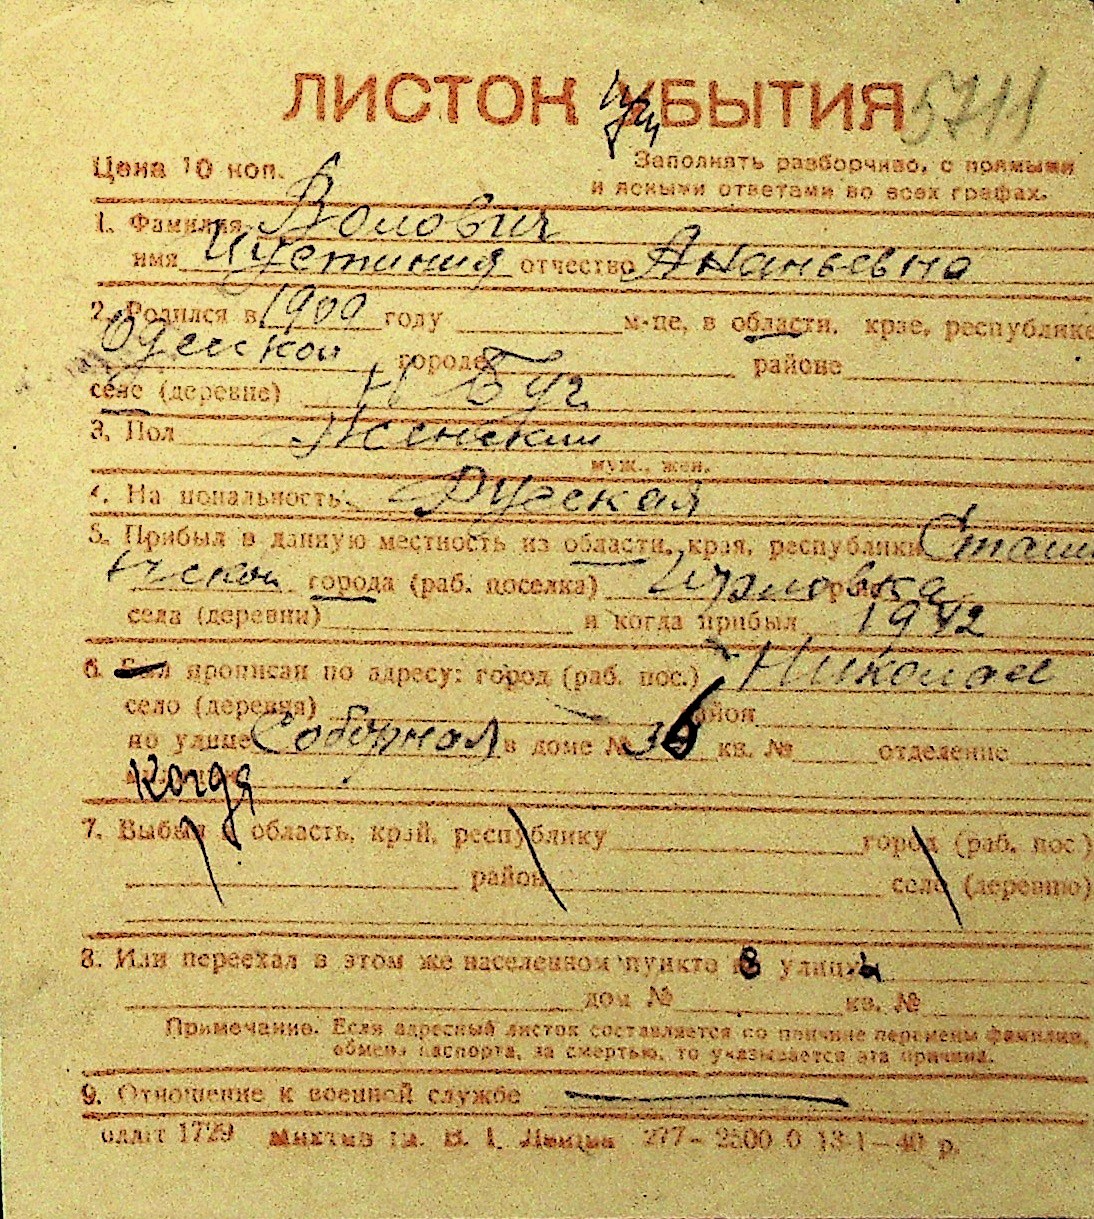 ЛИСТОК УБЫТИЯ 5711
Цена 10 коп. Заполнять разборчиво, с прямыми
и ясными ответами во всех графах.
1. Фамилия Волович
имя Иустиния отчество Ананьевна
2. Родился в 1900 году м-це, в области, крае, республике
Одесской городе районе
селе (деревне) Н Буг
3. Пол Женский
муж., жен.
4. На циональность Русская
5. Прибыл в данную местность из области, края, республики Сталин
ской города (раб. поселка) Курловка
села (деревни) и когда прибыл 1942
6. прописан по адресу: город (раб. пос.) Николаев
село (деревня) район
по улице Соборная в доме № 36 кв. № отделение
Когда
7. Выбыл в область, край, республику город (раб. пос.)
район село (деревню)
8. Или переехал в этом же населенном пункте в улицы
дом № кв. №
Примечание. Если адресный листок составляется по причине перемены фамилии,
обмена паспорта, за смертью, то указывается эта причина.
9. Отношение к военной службе
1729 им. В. І. Леніна 277—2500 0 13-1—40 р.